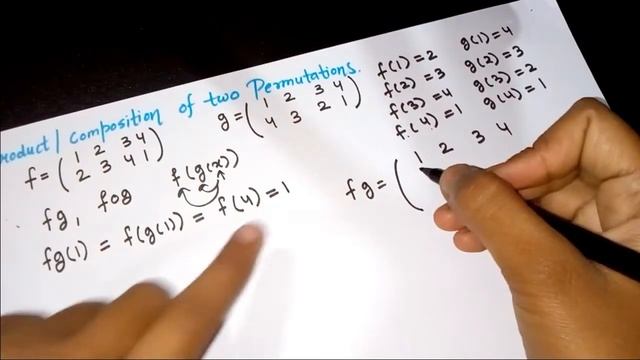 roduct / composition of two Permutations.
f = ( 1 2 3 4
2 3 4 1 )
g = ( 1 2 3 4
4 3 2 1 )
f(1) = 2 g(1) = 4
f(2) = 3 g(2) = 3
f(3) = 4 g(3) = 2
f(4) = 1 g(4) = 1
fg, fog
f(g(x))
fg(1) = f(g(1)) = f(4) = 1
fg = ( 1 2 3 4